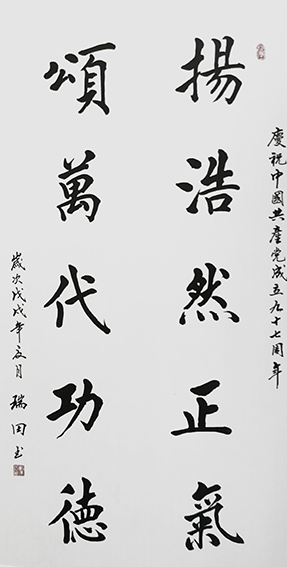 慶祝中國共產党成立九十七周年
揚浩然正氣
頌萬代功德
歲次戊戌年夏月 瑞田书